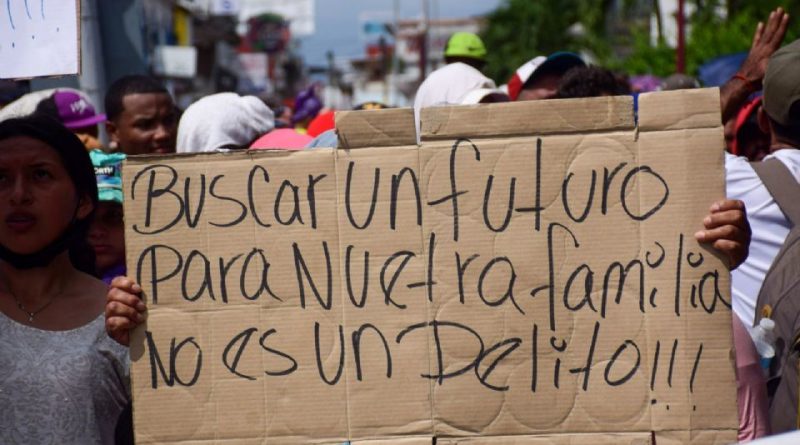 !!!
Buscar un futuro
Para Nuetra familia
No es un Delito!!!